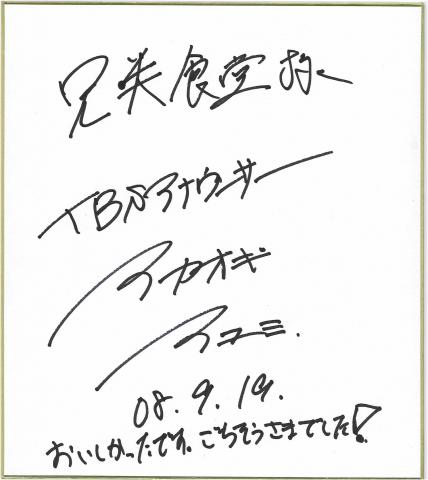 兄弟食堂 さん江
TBSアナウンサー
アカオギ
アユミ.
08.9.19.
おいしかったです。ごちそうさまでした!